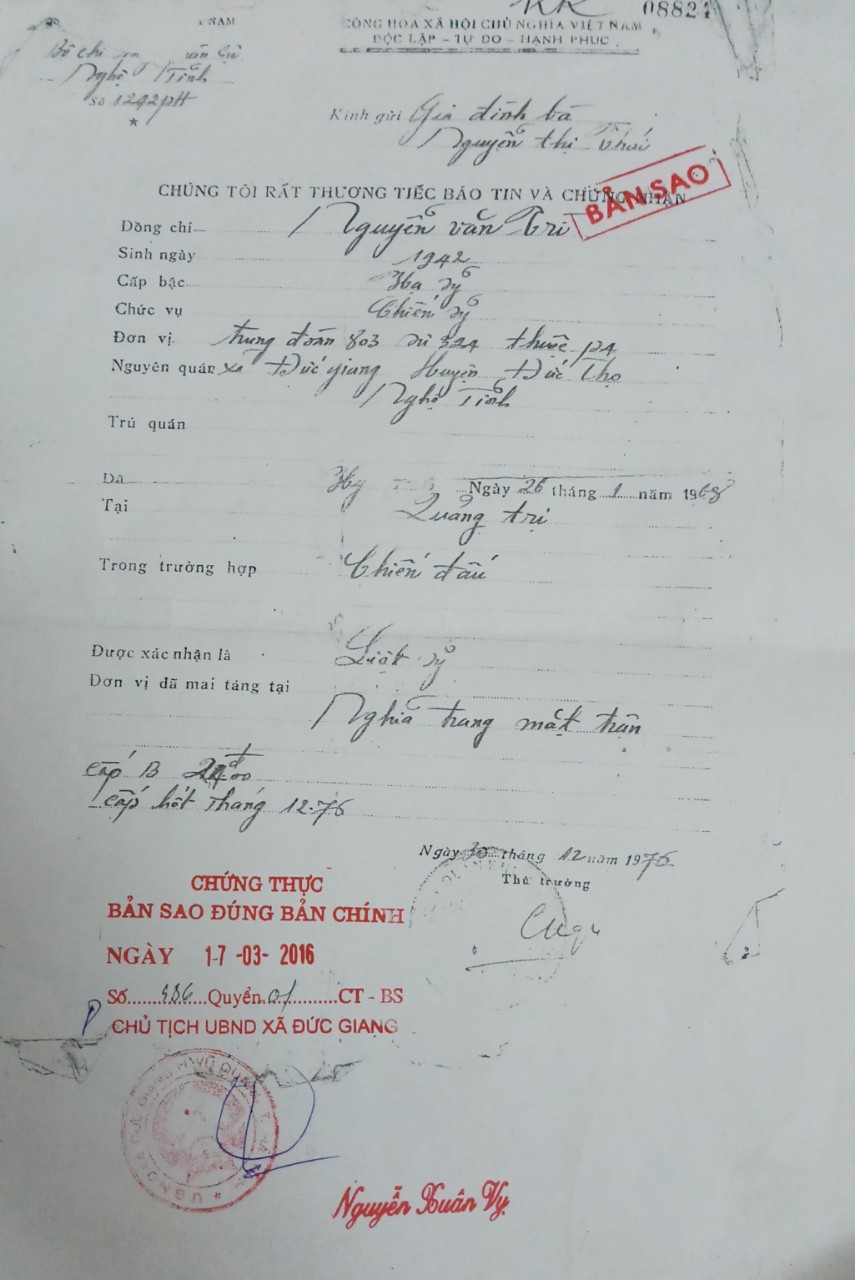 NAM
Nghệ Tĩnh
Số 1242PH
08824
CỘNG HÒA XÃ HỘI CHỦ NGHĨA VIỆT NAM
ĐỘC LẬP - TỰ DO - HẠNH PHÚC
Kính gửi Gia đình bà
Nguyễn thị
BẢN SAO
CHÚNG TÔI RẤT THƯƠNG TIẾC BÁO TIN VÀ CHỨNG NHẬN
Đồng chí Nguyễn văn Tri
Sinh ngày 1942
Cấp bậc Hạ sỹ
Chức vụ Chiến sỹ
Đơn vị trung đoàn 803 sư 324 thuộc P4
Nguyên quán xã Đức giang Huyện Đức Thọ
Nghệ Tĩnh
Trú quán
Đã Hy Ngày 26 tháng 1 năm 1968
Tại Quảng trị
Trong trường hợp Chiến đấu
Được xác nhận là Liệt sỹ
Đơn vị đã mai táng tại
Nghĩa trang mặt trận
cấp B
cấp hết tháng 12.76
Ngày 30 tháng 12 năm 1976
Thủ trưởng
CHỨNG THỰC
BẢN SAO ĐÚNG BẢN CHÍNH
NGÀY 17 -03- 2016
Số 486 Quyển 01 CT - BS
CHỦ TỊCH UBND XÃ ĐỨC GIANG
Nguyễn Xuân Vy